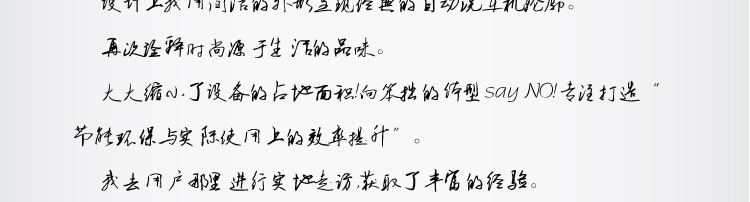 设计上我用简洁的外形呈现经典的自动洗车机轮廓。
再次诠释时尚源于生活的品味。
大大缩小了设备的占地面积!向笨拙的体型say NO!专注打造“
节能环保与实际使用上的效率提升”。
我去用户那里进行实地走访,获取了丰富的经验。